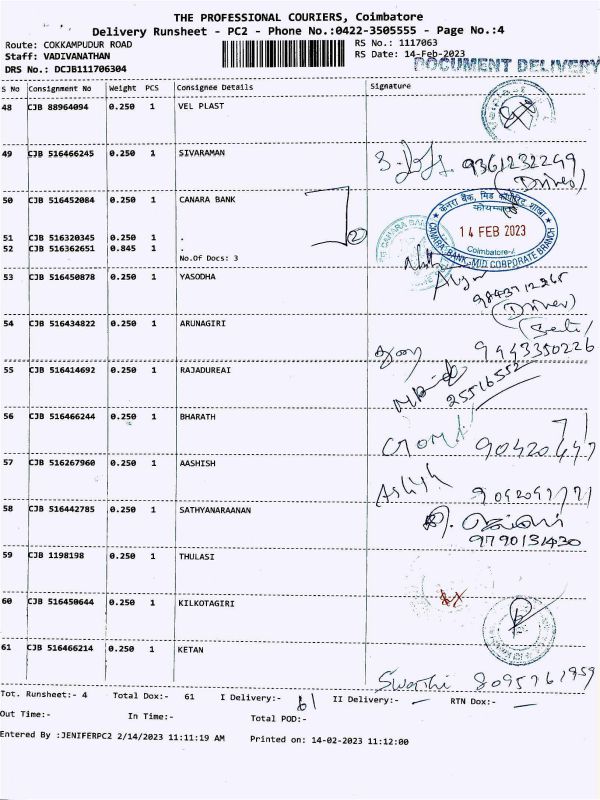 THE PROFESSIONAL COURIERS, Coimbatore
Delivery Runsheet - PC2 - Phone No.:0422-3505555 - Page No.:4
Route: COKKAMPUDUR ROAD RS No.: 1117063
Staff: VADIVANATHAN RS Date: 14-Feb-2023
DRS No.: DCJB111706304 DOCUMENT DELIVERY
S No Consignment No Weight PCS Consignee Details Signature
48 CJB 88964094 0.250 1 VEL PLAST
49 CJB 516466245 0.250 1 SIVARAMAN 9361232249
(Driver)
50 CJB 516452084 0.250 1 CANARA BANK
केनरा बैंक, मिड कॉर्पोरेट शाखा
14 FEB 2023
Coimbatore-
CANARA BANK, MID CORPORATE BRANCH
51 CJB 516320345 0.250 1 .
52 CJB 516362651 0.845 1 .
No.Of Docs: 3
53 CJB 516450878 0.250 1 YASODHA
(Driver)
54 CJB 516434822 0.250 1 ARUNAGIRI 9943350226
55 CJB 516414692 0.250 1 RAJADUREAI 25516552
56 CJB 516466244 0.250 1 BHARATH
57 CJB 516267960 0.250 1 AASHISH Ashish
58 CJB 516442785 0.250 1 SATHYANARAANAN
9790131430
59 CJB 1198198 1 THULASI
60 CJB 516450644 0.250 1 KILKOTAGIRI
61 CJB 516466214 0.250 1 KETAN
Swathi 8095761959
Tot. Runsheet:- 4 Total Dox:- 61 I Delivery:- 61 II Delivery:- — RTN Dox:- —
Out Time:- In Time:- Total POD:-
Entered By :JENIFERPC2 2/14/2023 11:11:19 AM Printed on: 14-02-2023 11:12:00